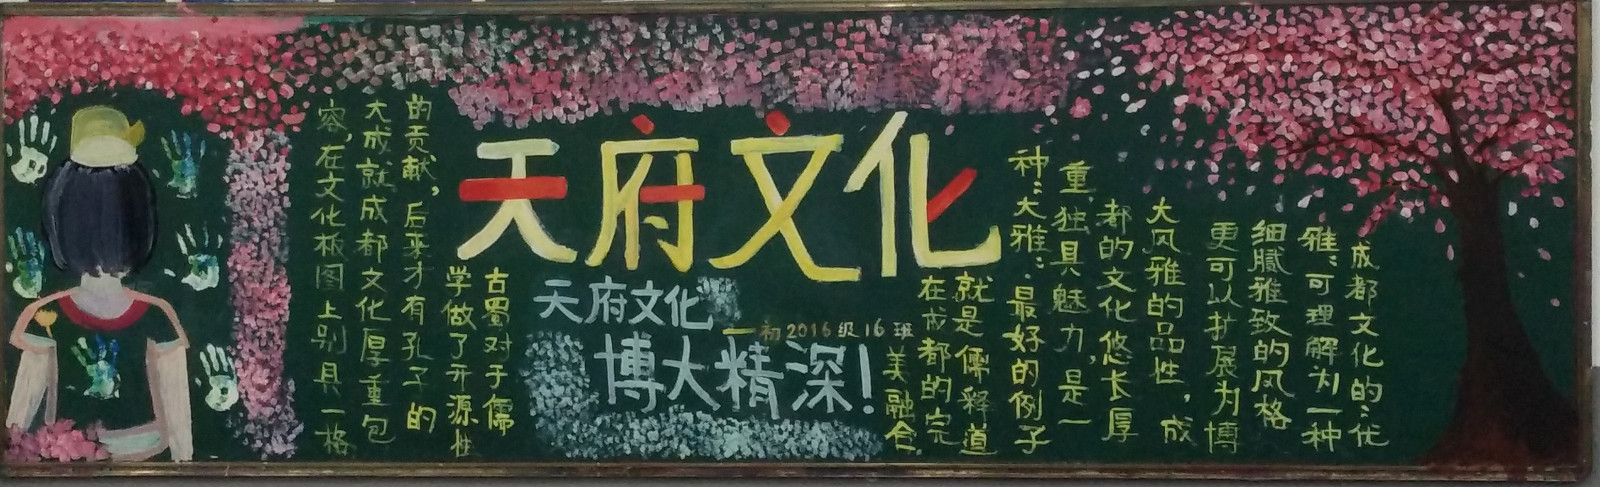 天府文化
天府文化
博大精深！
—初2016级16班
成都文化的:优
雅:可理解为一种
细腻雅致的风格
更可以扩展为博
大风雅的品性，成
都的文化悠长厚
重，独具魅力，是一
种:大雅:最好的例子
就是儒释道
在成都的完
美融合.
古蜀对于儒
学做了开源性
的贡献，后来才有孔子的
大成就成都文化厚重包
容，在文化板图上别具一格